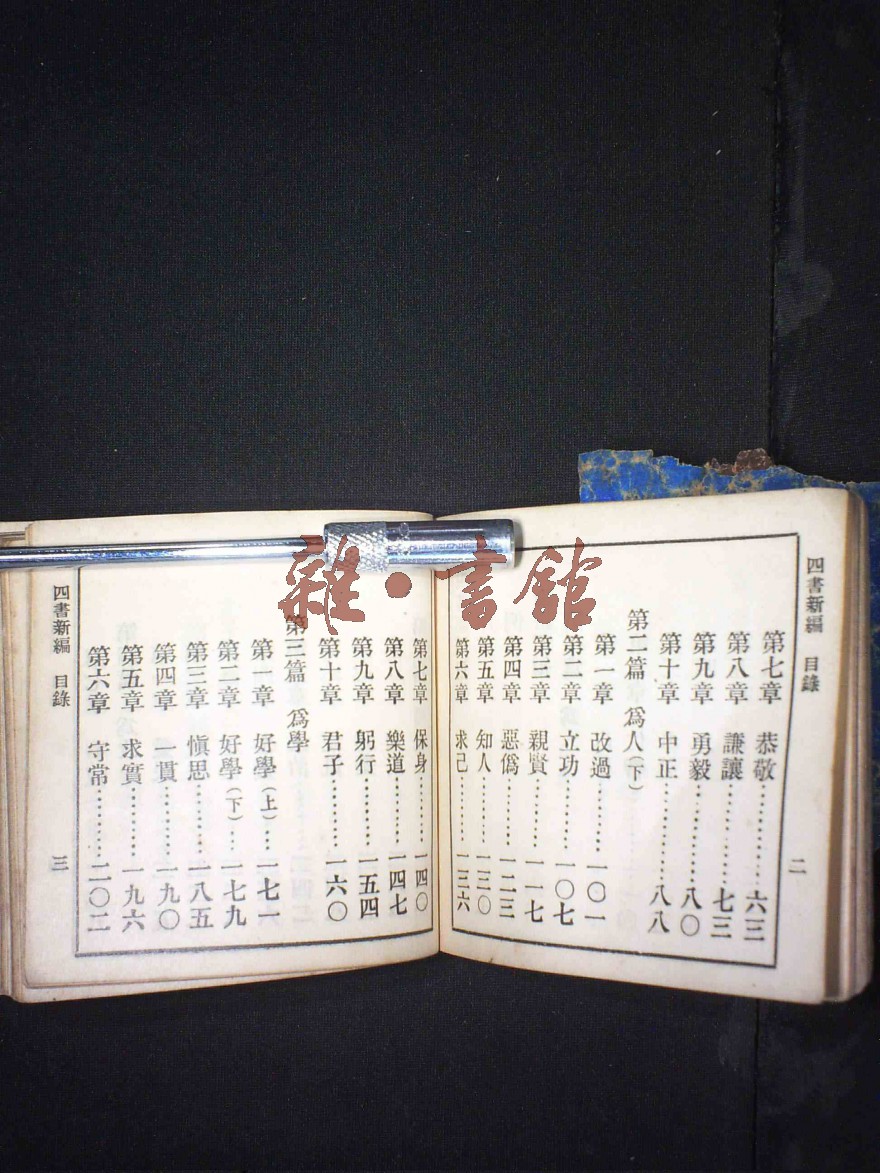 四書新編 目錄
二
第七章 恭敬…………六三
第八章 謙讓…………七三
第九章 勇毅…………八〇
第十章 中正…………八八
第二篇 爲人(下)
第一章 改過…………一〇一
第二章 立功…………一〇七
第三章 親賢…………一一七
第四章 惡僞…………一二三
第五章 知人…………一三〇
第六章 求己…………一三六
第七章 保身…………一四〇
第八章 樂道…………一四七
第九章 躬行…………一五四
第十章 君子…………一六〇
第三篇 爲學
第一章 好學(上)…一七一
第二章 好學(下)…一七九
第三章 愼思…………一八五
第四章 一貫…………一九〇
第五章 求實…………一九六
第六章 守常…………二〇二
四書新編 目錄
三
雜·書館